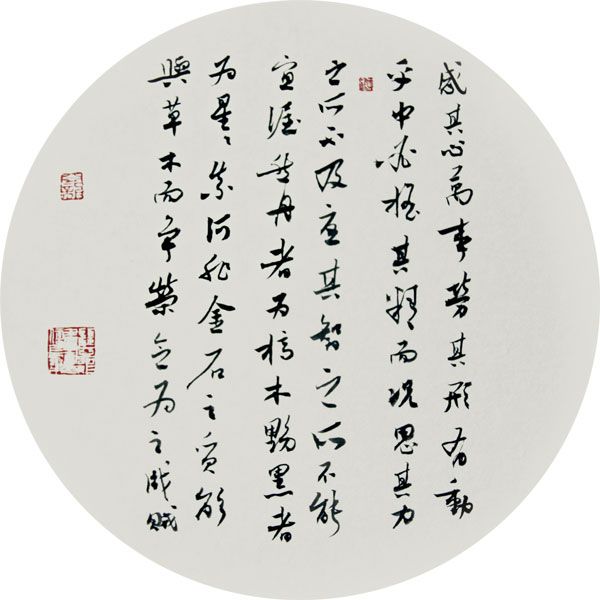 感其心萬事勞其形有動
乎中必搖其精而況思其力
之所不及憂其智之所不能
宜渥然丹者为槁木黟黑者
为星々奈何非金石之质欲
與草木而争榮念为之戕贼